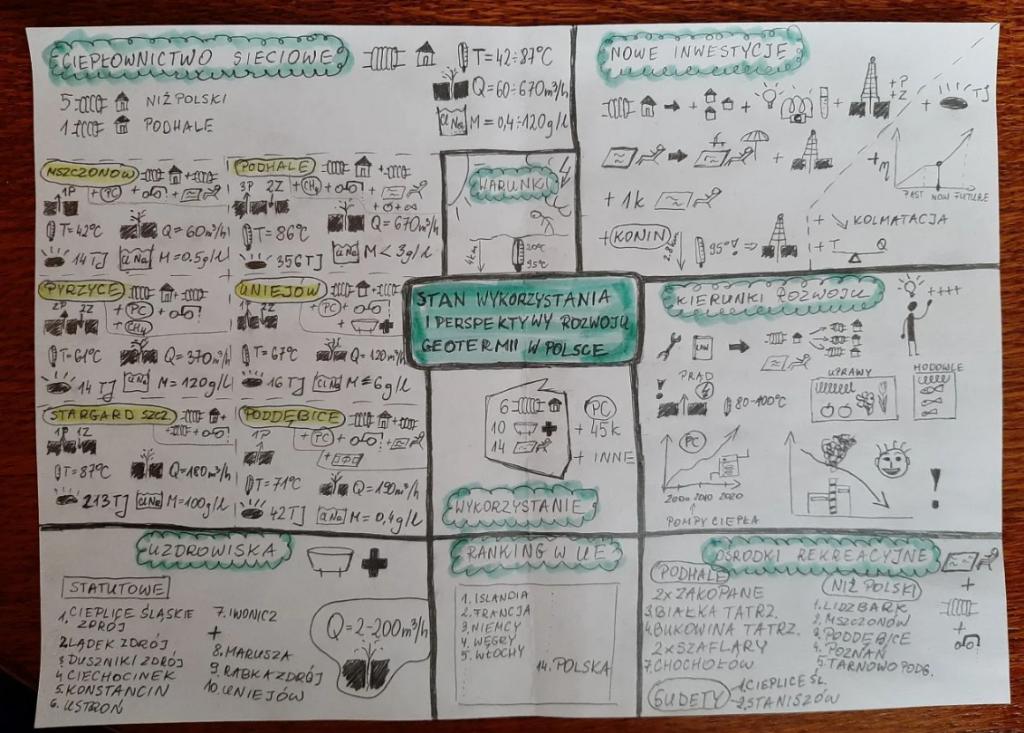 CIEPŁOWNICTWO SIECIOWE
T=42÷87°C
Q=60÷670m³/h
Cl Na M=0,4÷120g/l
5 NIŻ POLSKI
1 PODHALE
MSZCZONÓW
1P +PC + +
T=42°C Q=60m³/h
14 TJ Cl Na M=0.5g/l
PODHALE
3P 2Z +CH4 + +
T=86°C Q=670m³/h
356 TJ Cl Na M<3g/l
PYRZYCE
2P 2Z +PC
+CH4
T=61°C Q=370m³/h
14 TJ Cl Na M=120g/l
UNIEJÓW
1P 2Z +PC +
T=67°C Q=120m³/h
16 TJ Cl Na M≤6g/l
STARGARD SZCZ.
1P 1Z
T=87°C Q=180m³/h
213TJ Cl Na M=100g/l
PODDĘBICE
1P +PC +
T=71°C Q=190m³/h
42TJ Cl Na M=0,4g/l
WARUNKI
4km 20°C
95°C
STAN WYKORZYSTANIA
I PERSPEKTYWY ROZWOJU
GEOTERMII W POLSCE
6
10
14
PC
+ 45k
+ INNE
WYKORZYSTANIE
NOWE INWESTYCJE
+P
+Z
+ TJ
+ 1k
+ KONIN 2.8km 95°! →
+η
PAST NOW FUTURE
+ ↘ KOLMATACJA
+ T Q
KIERUNKI ROZWOJU
++++
LAW
! PRĄD
80-100°C
UPRAWY
HODOWLE
PC
2000 2010 2020
POMPY CIEPŁA
!
UZDROWISKA
STATUTOWE
1. CIEPLICE ŚLĄSKIE
ZDRÓJ
2. LĄDEK ZDRÓJ
3 DUSZNIKI ZDRÓJ
4 CIECHOCINEK
5. KONSTANCIN
6. USTROŃ
7. IWONICZ
+
8. MARUSZA
9. RABKA ZDRÓJ
10. UNIEJÓW
Q=2-200m³/h
RANKING W UE
1. ISLANDIA
2. FRANCJA
3. NIEMCY
4. WĘGRY
5. WŁOCHY
14. POLSKA
OŚRODKI REKREACYJNE
PODHALE
2x ZAKOPANE
3. BIAŁKA TATRZ.
4. BUKOWINA TATRZ.
2x SZAFLARY
7. CHOCHOŁÓW
NIŻ POLSKI
1. LIDZBARK
2. MSZCZONÓW
3. PODDĘBICE
4. POZNAŃ
5. TARNOWO PODG.
SUDETY
1. CIEPLICE ŚL.
2. STANISZÓW